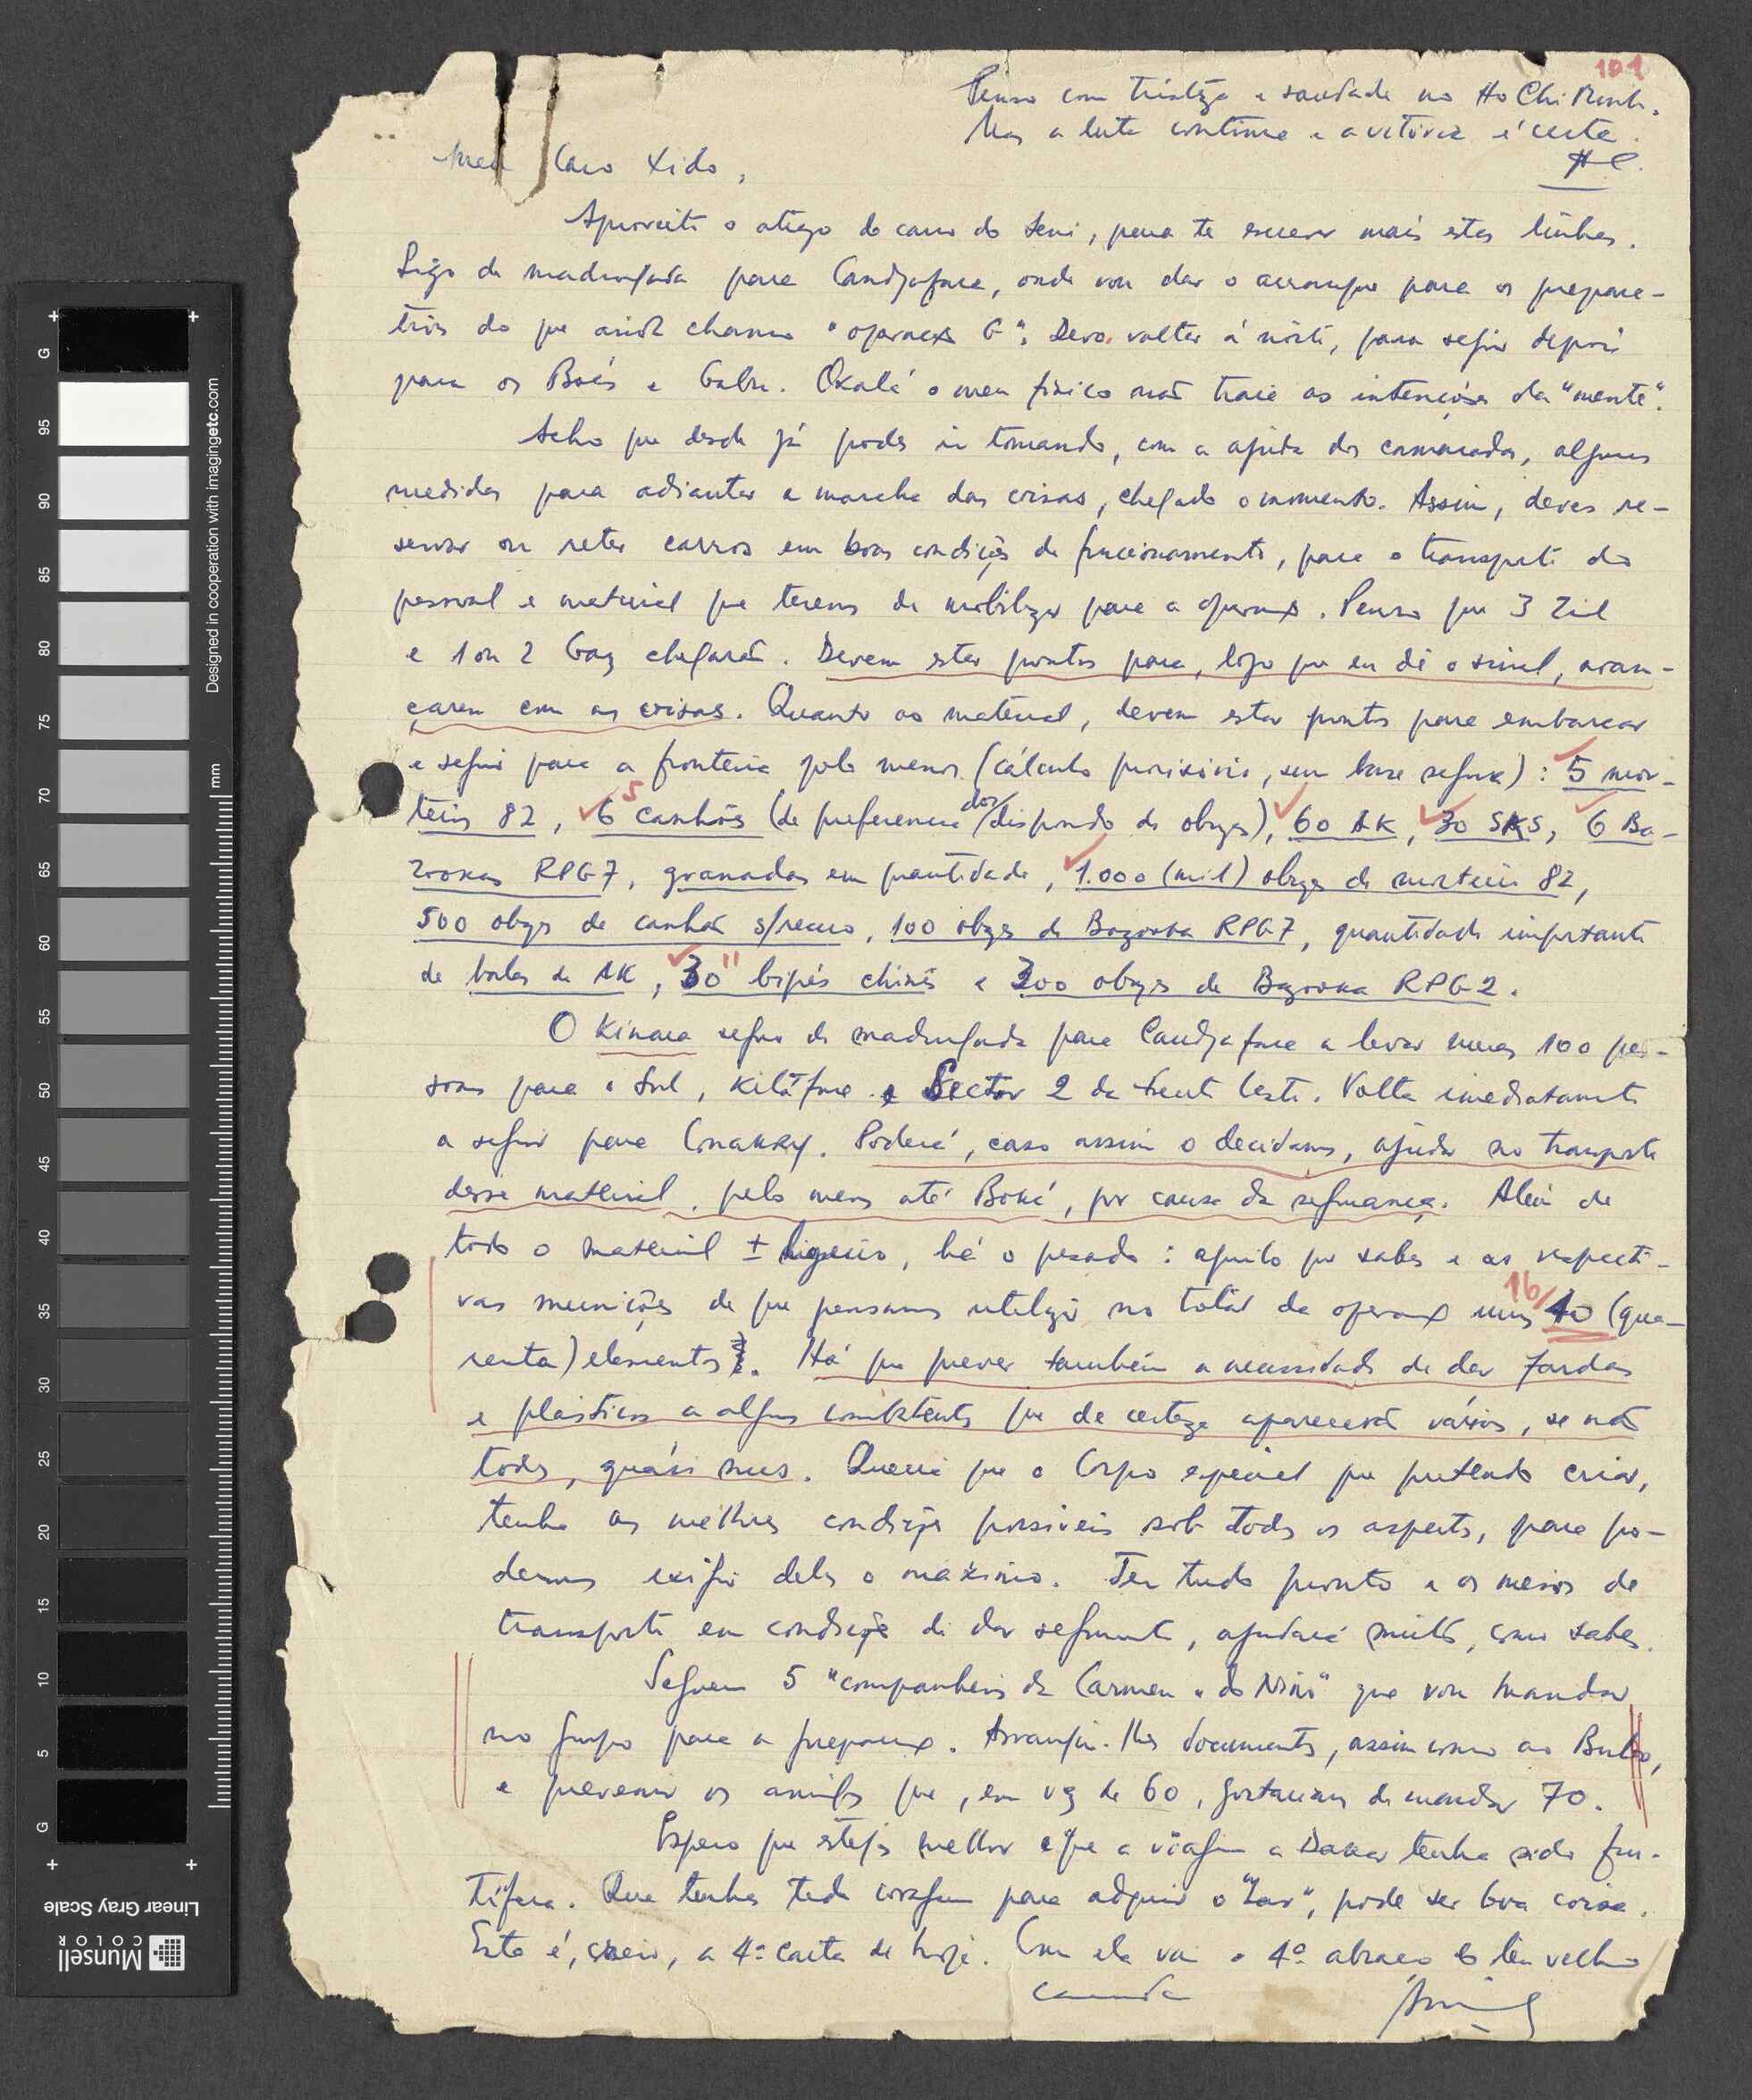 101
Penso com tristeza e saudade no Ho Chi Minh.
Mas a luta continua e a vitória é certa.
AC.
Meu Caro Xido,
Aproveito o atrazo do carro do Seni, para te escrever mais estas linhas.
Sigo de madrugada para Candjafara, onde vou dar o arranjo para os prepara-
tivos do que chamo "operação G". Devo voltar à noite, para seguir depois
para os Boés e Gabu. Oxalá o meu físico não traia as intenções da "mente".
Acho que desde já podes ir tomando, com a ajuda dos camaradas, algumas
medidas para adiantar a marcha das coisas, chegado o momento. Assim, deves re-
servar ou reter carros em boas condições de funcionamento, para o transporte do
pessoal e material que teremos de mobilizar para a operação. Penso que 3 Zil
e 1 ou 2 Gaz chegarão. Devem estar prontos para, logo que eu dê o sinal, avan-
çarem com as coisas. Quanto ao material, devem estar prontos para embarcar
e seguir para a fronteira pelo menos (cálculo provisório, sem base segura): 5 mor-
teiros 82, 6 5 canhões (de preferencia dos/ dispondo de obuzes), 60 AK, 30 SKS, 6 Ba-
zookas RPG7, granadas em quantidade, 1.000 (mil) obuzes de morteiro 82,
500 obuzes de canhão s/recuo, 100 obuzes de Bazooka RPG7, quantidade importante
de balas de AK, 30 " bipés chinês e 200 obuzes de Bazooka RPG-2.
O Kinara segue de madrugada para Candjafara a levar umas 100 pes-
soas para o Sul, Kitáfine e Sector 2 da Frente Leste. Volta imediatamente
a seguir para Conakry. Poderá, caso assim o decidamos, ajudar no transporte
desse material, pelo menos até Boké, por causa da segurança. Além de
todo o material ± ligeiro, há o pesado: aquilo que sabes e as respecti-
vas munições de que pensamos utilizar no total da operação uns 40 16/ (qua-
renta) elementos. Há que prever também a necessidade de dar fardas
e plásticos a alguns combatentes que de certeza aparecerão vários, se não
todos, quási nus. Queria que o Corpo especial que pretendo criar,
tenha as melhores condições possiveis sob todos os aspectos, para po-
dermos exigir deles o máximo. Ter tudo pronto e os meios de
transporte em condições de dar seguimento, ajudará muito, como sabes.
Seguem 5 "companheiros da Carmen e do Nino" que vou mandar
no grupo para a preparação. Arranja-lhes documentos, assim como ao
e prevenir os amigos que, em vez de 60, gostariamos de mandar 70.
Espero que estejas melhor e que a viagem a Dakar tenha sido fru-
tífera. Que tenhas tido coragem para adquirir o "Zav", pode ser boa coisa.
Esta é, creio, a 4ª carta de hoje. Com ela vai o 4º abraço do teu velho
camarada
Amílcar
Designed in cooperation with imagingetc.com
Linear Gray Scale
Munsell COLOR
mm
G 95 90 85 80 75 70 65 60 55 50 45 40 35 30 25 20 15 10 5 G